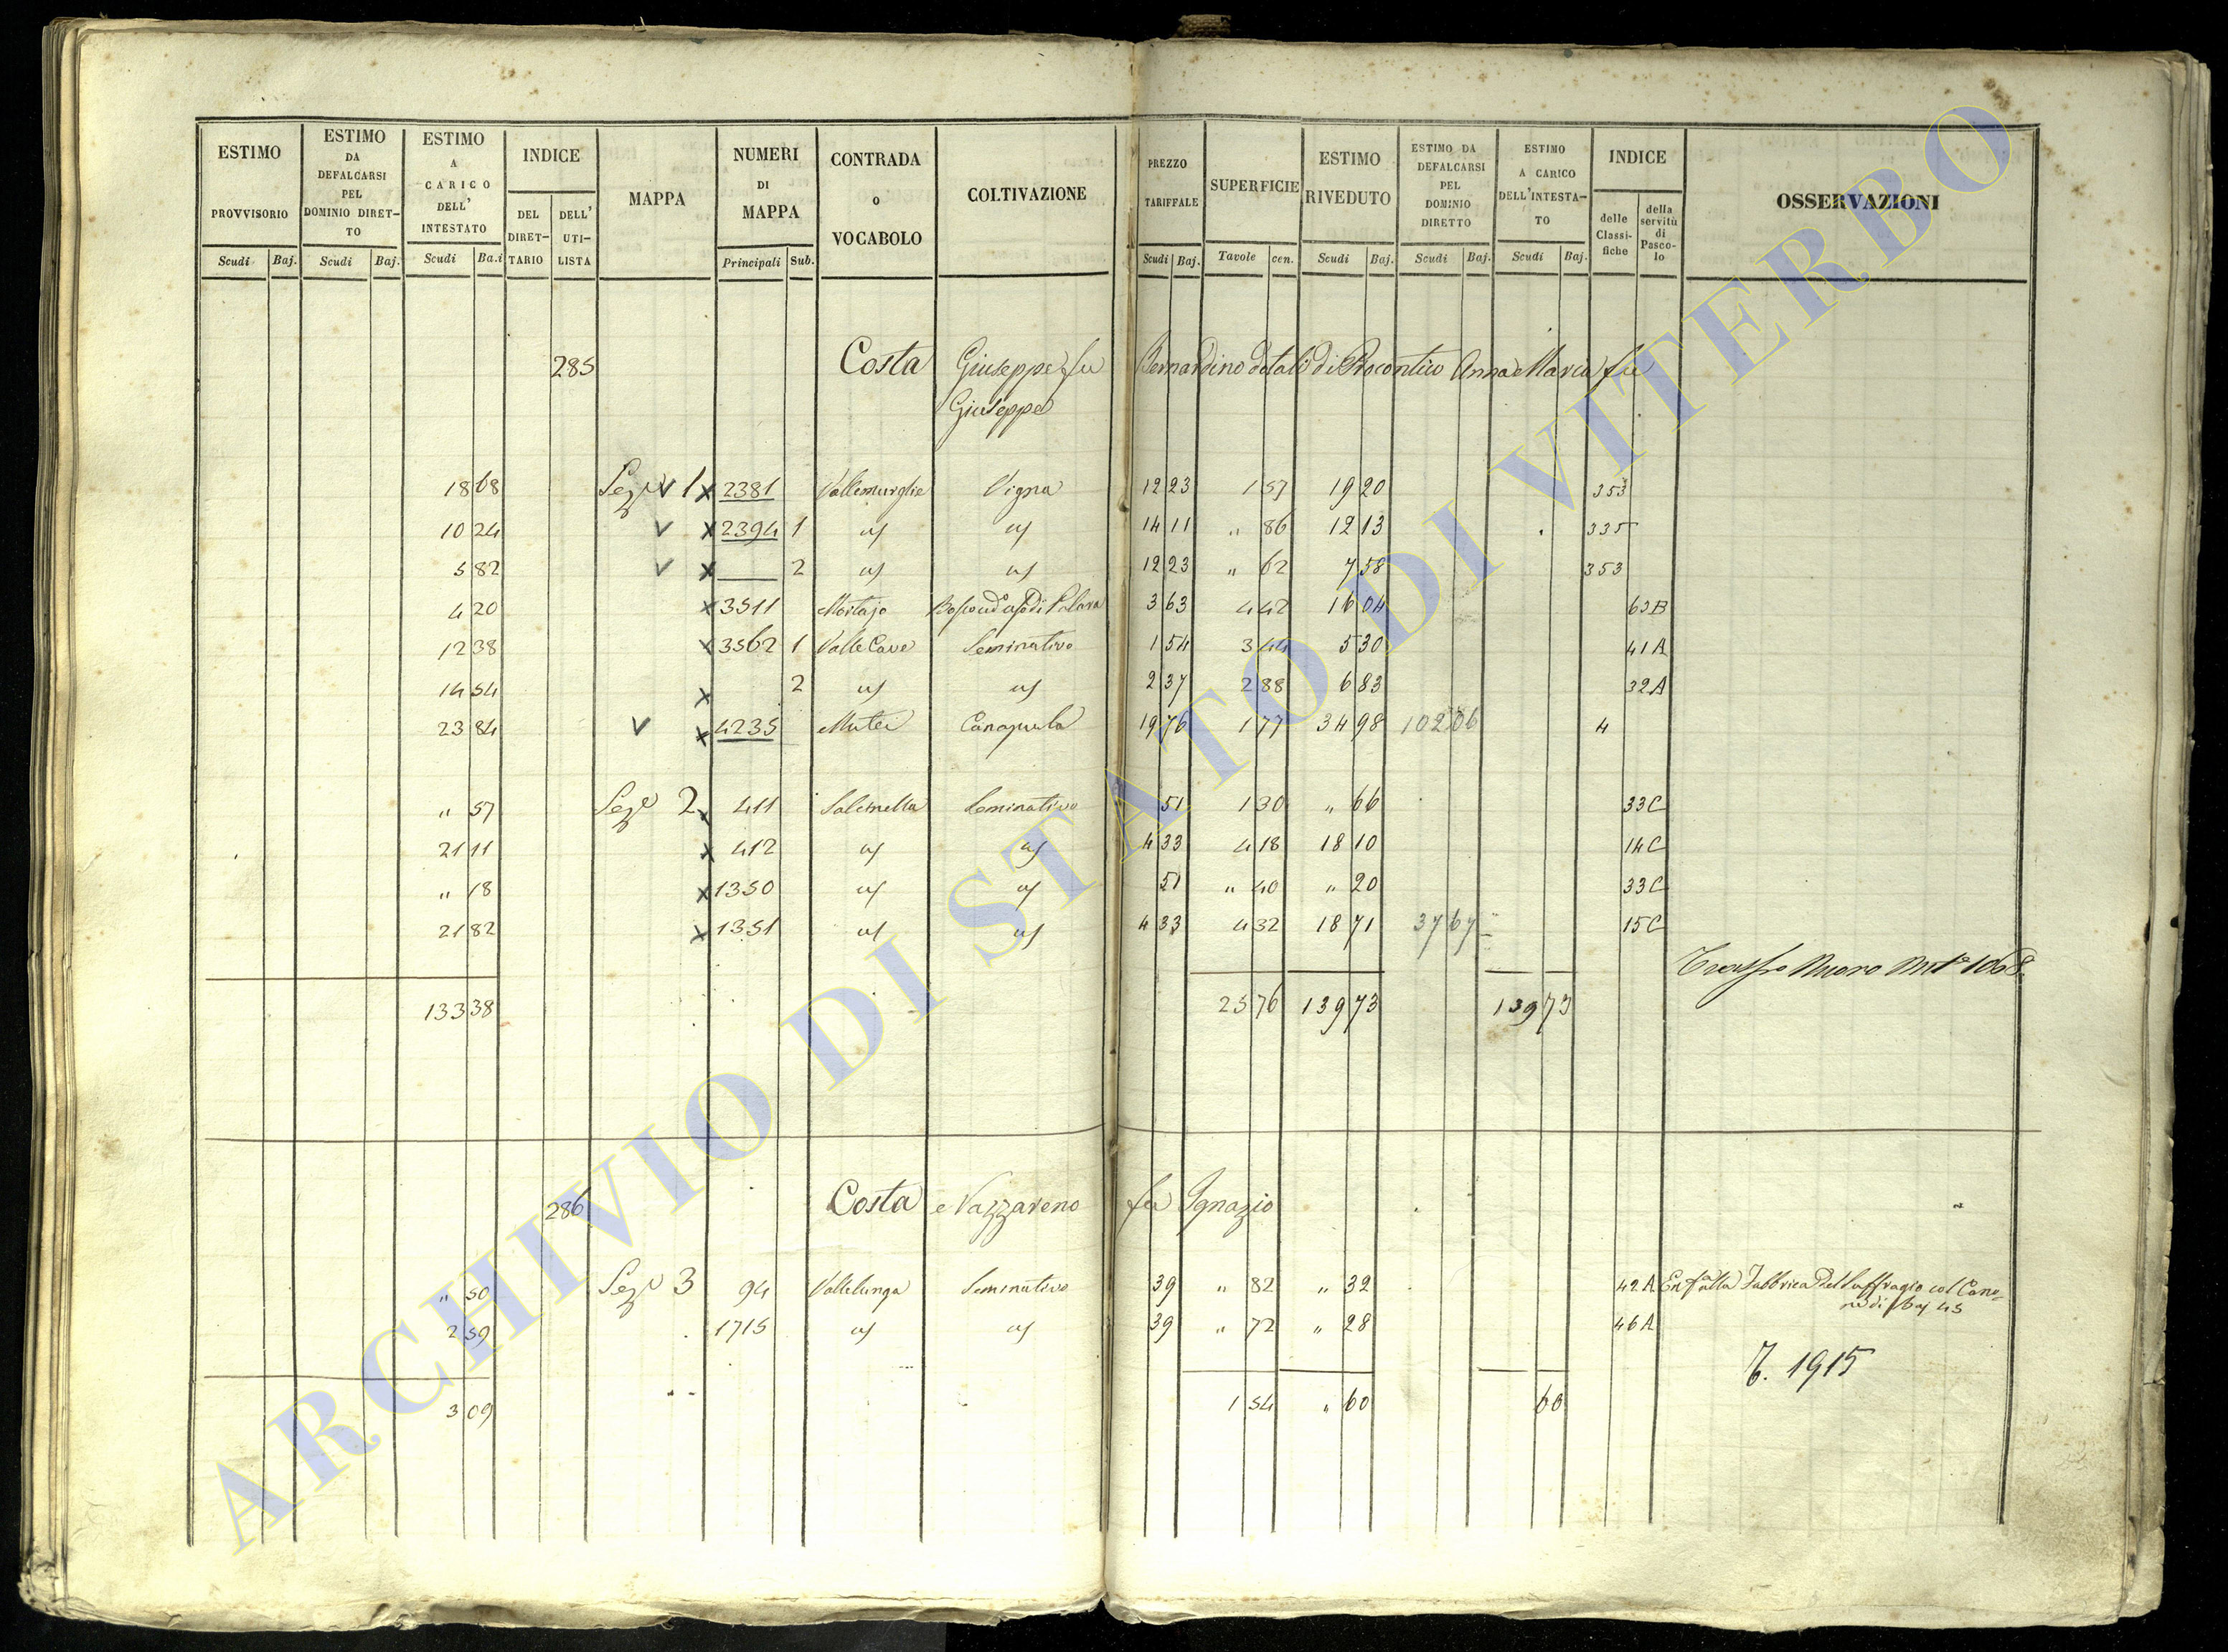 ESTIMO PROVVISORIO Scudi Baj.
ESTIMO DA DEFALCARSI PEL DOMINIO DIRET-TO Scudi Baj.
ESTIMO A CARICO DELL' INTESTATO Scudi Ba.i
INDICE DEL DIRET-TARIO DELL' UTI-LISTA
MAPPA
NUMERI DI MAPPA Principali Sub.
CONTRADA o VOCABOLO
COLTIVAZIONE
PREZZO TARIFFALE Scudi Baj.
SUPERFICIE Tavole cen.
ESTIMO RIVEDUTO Scudi Baj.
ESTIMO DA DEFALCARSI PEL DOMINIO DIRETTO Scudi Baj.
ESTIMO A CARICO DELL'INTESTA-TO Scudi Baj.
INDICE delle Classi-fiche della servitù di Pasco-lo
OSSERVAZIONI
285 Costa Giuseppe fu Bernardino dotali di Anna Maria fu
Giuseppe
18 68 Seze V 1 x 2381 Vigna 12 23 1 57 19 20 353
10 24 V x 2394 1 " " 14 11 " 86 12 13 335
5 82 V x 2 " " 12 23 " 62 7 58 353
4 20 x 3511 Mortajo 3 63 4 42 16 04 63B
12 38 x 3562 1 Valle Cave Seminativo 1 54 3 44 5 30 41A
14 54 x 2 " " 2 37 2 88 6 83 32A
23 84 V x 4235 Matei Canapula 19 76 1 77 34 98 102 06 4
" 57 Seze 2 x 411 Seminativo 51 1 30 " 66 33C
21 11 x 412 " " 4 33 4 18 18 10 14C
" 18 x 1350 " " 51 " 40 " 20 33C
21 82 x 1351 " " 4 33 4 32 18 71 37 67 15C
1068
133 38 25 76 139 73 139 73
286 Costa Nazzareno fu Ignazio
" 50 Sezе 3 94 Vallelunga Seminativo 39 " 82 " 32 42A Enfta alla Fabbrica del Suffragio col Cano-
ne di baj 45
2 59 1715 " " 39 " 72 " 28 46A
T. 1915
3 09 1 54 " 60 60
ARCHIVIO DI STATO DI VITERBO